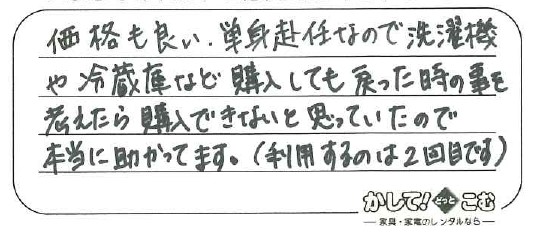 価格も良い、単身赴任なので洗濯機
や冷蔵庫など購入しても戻った時の事を
考えたら購入できないと思っていたので
本当に助かってます。(利用するのは2回目です)
かして!どっとこむ
家具・家電のレンタルなら